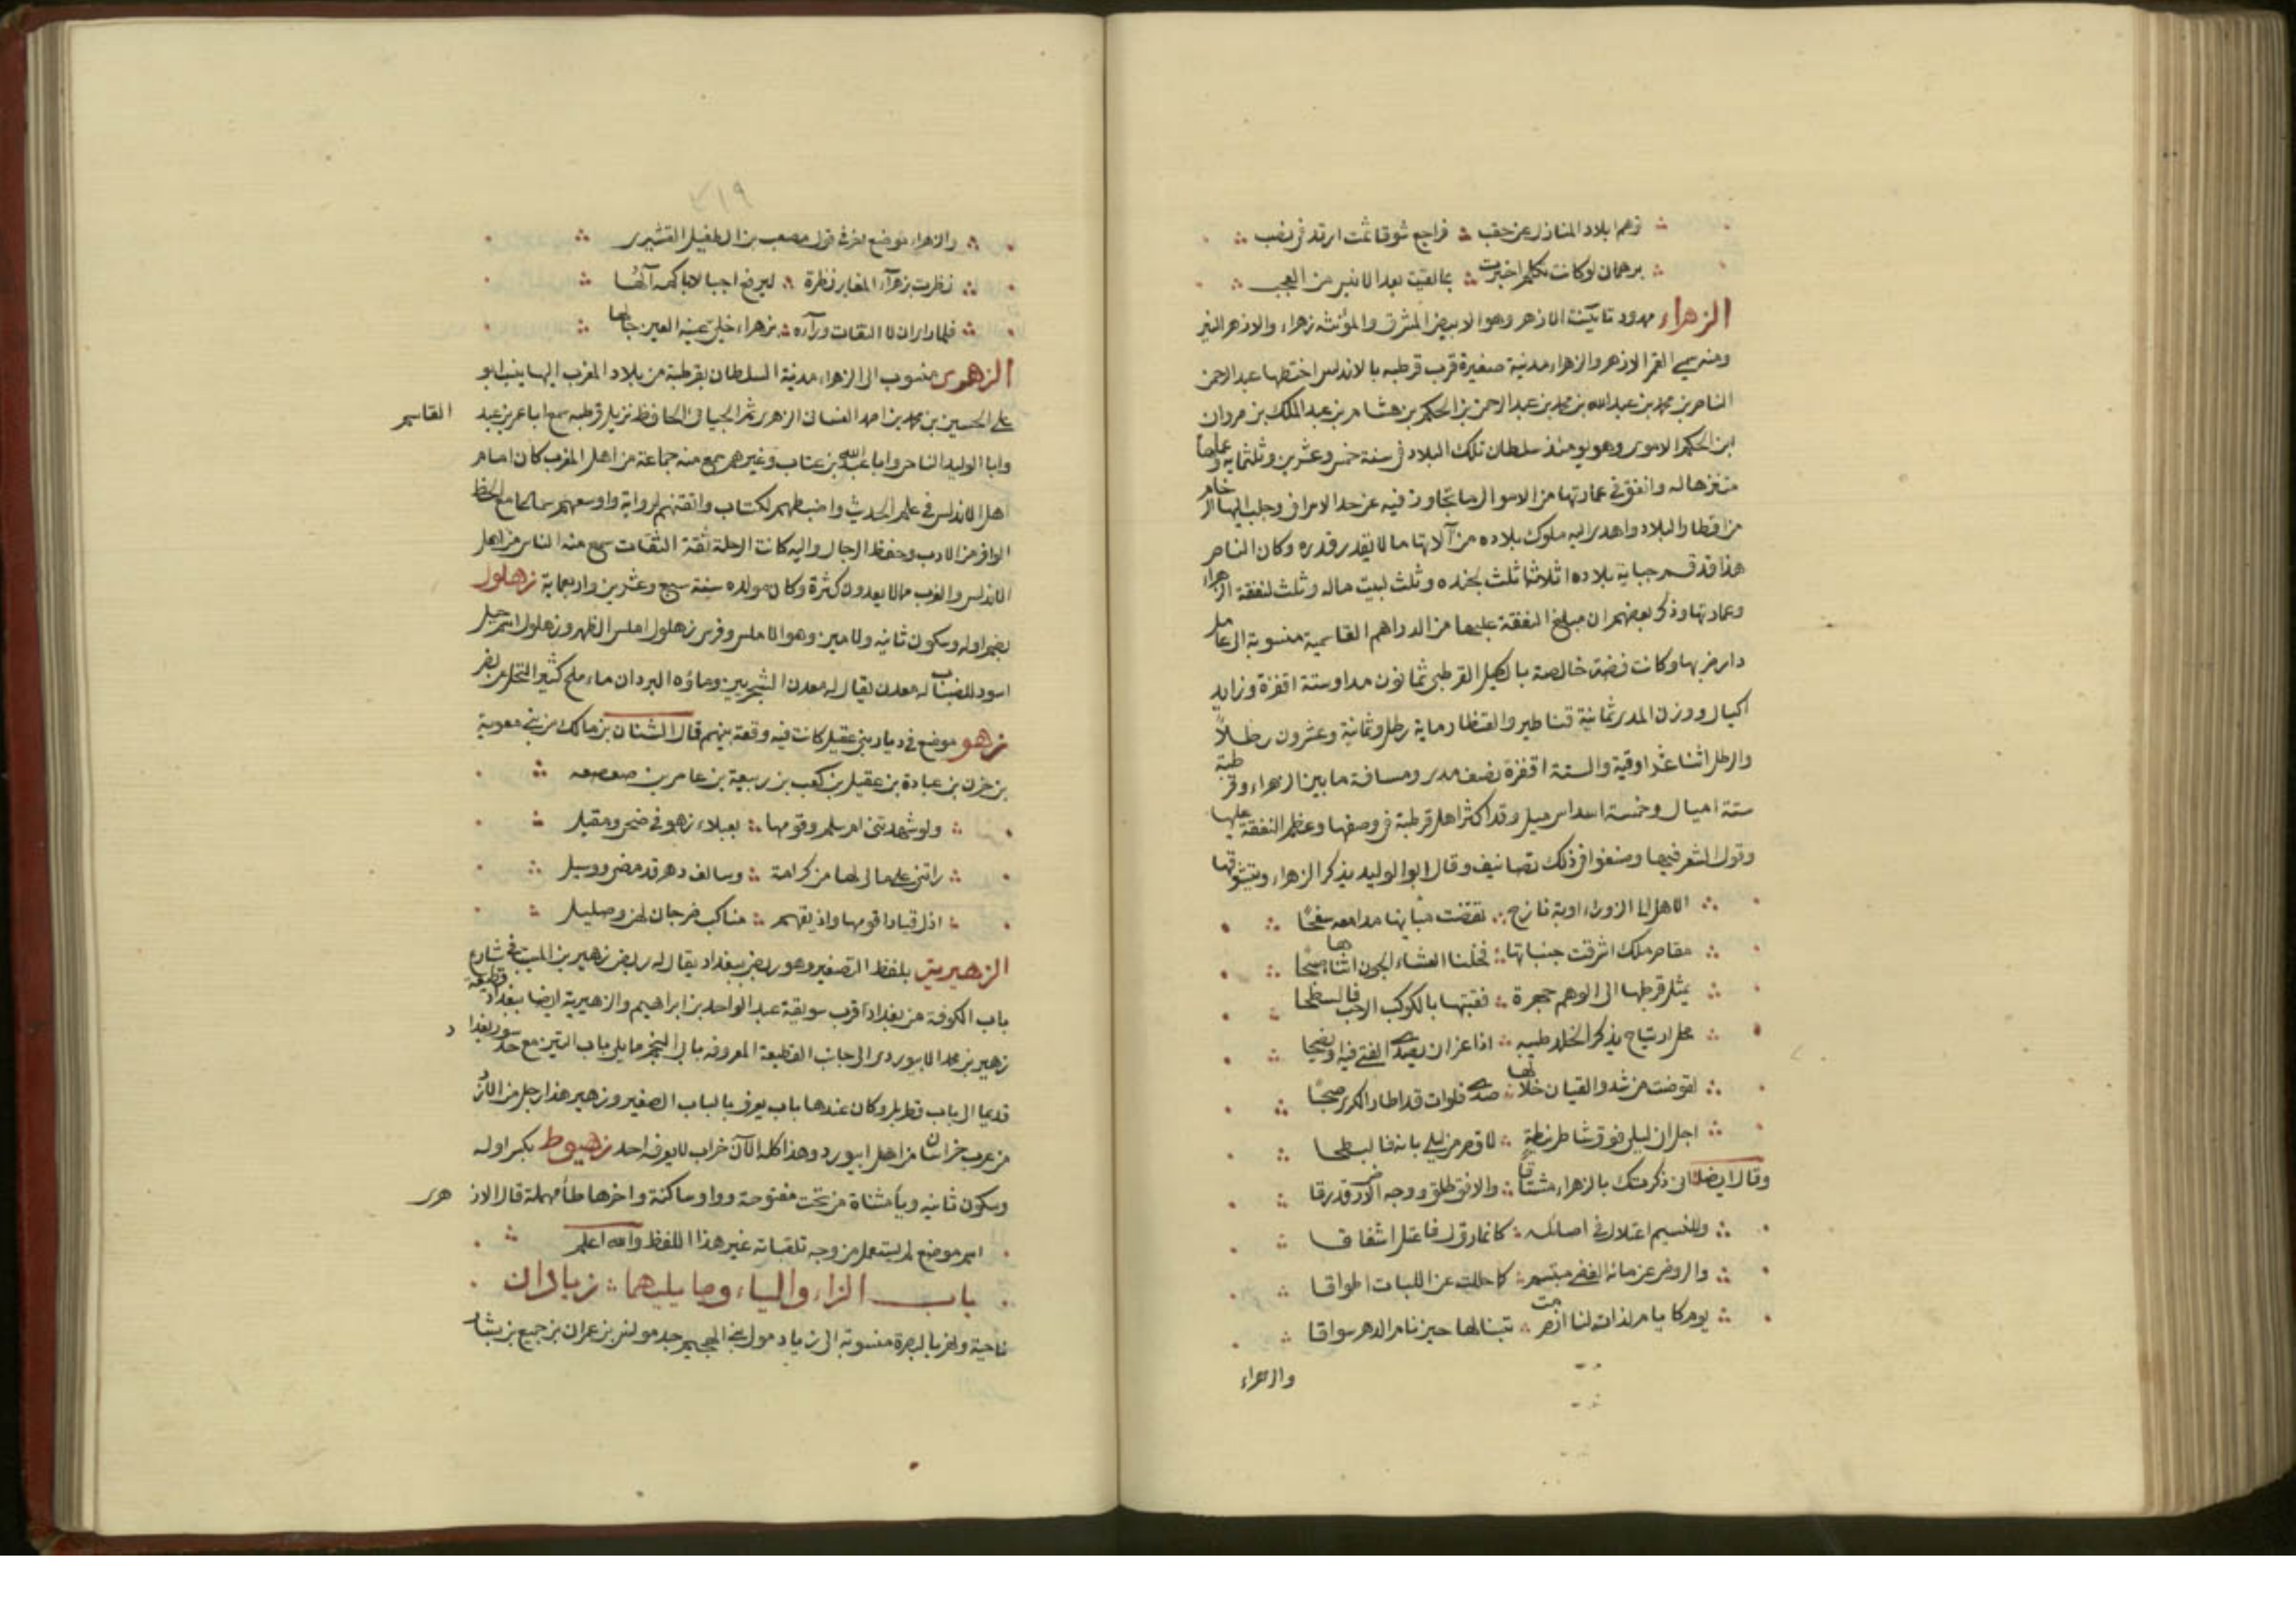 توهم ابلاد المنازل عن حقب فراجع شوقا ثمت ارتد فى نصب
برهمان لو كانت تكلم اخبرت بما لقيت بعد الانيس من العجب
الزهراء ممدود تانيث الازهر وهو الابيض المشرق والمؤنثه زهراء والازهر النير
ومنه سمى القمر الازهر والزهراء مدنية صغيرة قرب قرطبه بالاندلس اختطها عبد الرحمن
الناصر بن محمد بن عبد الله بن محمد بن عبد الرحمن بن الحكم بن هشام بن عبد الملك بن مروان
ابن الحكم الاموى وهو يومئذ سلطان تلك البلاد فى سنة خمس وعشرين وثلثمايه وعملها
متنزها له وانفق فى عمارتها من الاموال ما تجاوز فيه عن حد الاسراف وجلب اليها الرخام
من اقطار البلاد واهدى اليه ملوك بلاده من آلاتها ما لا يقدر قدره وكان الناصر
هذا قد قسم جباية بلاده اثلاثا ثلث لجنده وثلث لبيت ماله وثلث لنفقة الزهراء
وعمارتها وذكر بعضهم ان مبلغ النفقة عليها من الدراهم القاسمية منسوبة الى عامل
دار ضربها وكانت فضة خالصة بالكيل القرطبى ثمانون مدا وستة اقفزة وزايد
اكيال ووزن المدى ثمانية قناطير والقنطار ماية رطل وثمانية وعشرون رطلاً
والرطل اثنا عشر اوقية والستة اقفزة نصف مدى ومسافة ما بين الزهراء وقرطبة
ستة اميال وخمسة اسداس ميل وقد اكثر اهل قرطبة فى وصفها وعظم النفقة عليها
وقول الشعر فيها وصنفوا فى ذلك تصانيف وقال ابو الوليد يذكر الزهراء ويتشوقها
الا هل الى الزوراء اوبة نازح تقضت مبانيها مدامعه سفحًا
مقاصر ملك اشرقت جنباتها فخلنا العشاء الجون اثناءها صبحًا
يمثل قرطيها الى الوهم جهرة فقبتها بالكوكب الرحب فالسطحا
محل ارتياح يذكر الخلد طيبه اذا عز ان يصدى الفتى فيه او يضحيا
تعوضت من شدو القيان خلالها صدى فلوات قد اطار الكرى صبحًا
اجل ان ليلى فوق شاطى نيطة لاقصر من ليلى بانه فالبطحا
وقال ايضا انى ذكرتك بالزهراء مشتاقا والافق طلق ووجه الارض قد رقا
وللنسيم اعتلال فى اصائله كانما رق لى فاعتل اشفاقا
والروض عن مائه الفضى مبتسم كما حللت عن اللبات اطواقا
يوم كايام لذات لنا انصرمت بتنا لها حين نام الدهر سراقا
والزهراء
٤١٩
والزهراء موضع اخر فى قول مصعب بن الطفيل القشيرى
نظرت بزهراء المغابر نظرة ليرفع اجبالا باكمه آلُها
فلما راى ان لا التفات ورآءه بزهراء خلى عينه العين جالها
الزهوى منسوب الى الزهراء مدنية السلطان بقرطبة من بلاد المغرب اليها ينسب ابو
على الحسين بن محمد بن احمد الغسانى الزهرى ثم الجيانى الحافظ نزيل قرطبه سمع ابا عمر بن عبد
القاسم
وابا الوليد الناجى وابا عبد الله بن عتاب وغيرهم سمع منه جماعة من اهل المغرب كان امام
اهل الاندلس فى علم الحديث واضبطهم لكتاب واتقنهم لرواية واوسعهم سماعا مع الحظ
الوافر من الادب وحفظ الرجال واليه كانت الرحلة ثقة الثقات سمع منه الناس من اهل
الاندلس والغرب ممن لا يعدون كثرة وكان مولده سنة سبع وعشرين واربعماية زهلول
بضم اوله وسكون ثانيه ولامين وهو الاملس وفرس زهلول املس الظهر وزهلول اسم جبل
اسود للضباب له معدن يقال له معدن الشجرتين وماؤه البردان ماء ملح كثير النخل عن نصر
زهو موضع فى ديار بنى عقيل كانت فيه وقعة بينهم قال الشنان بن مالك من بنى معوية
بن حزن بن عبادة بن عقيل بن كعب بن ربيعة بن عامر بن صعصعه
ولو شهدتنى ام سلم وقومها بعبلاء زهو فى ضحى ومقيل
راتنى على ما لى لها من كرامة وسالف دهر قد مضى ووسيل
اذل قيادا قومها واذيقهم مناكب ضرجان لهن وصليل
الزهيرية بلفظ التصغير وهو ربض ببغداد يقال له ربض زهير بن المسيب فى شارع
باب الكوفة من بغداد اقرب سويقة عبد الواحد بن ابراهيم والزهيرية ايضا ببغداد قطيعة
زهير بن محمد الابيوردى الى جانب القطيعة المعروفه بابى النجم مما يلى باب التين مع حد سور بغدا
د
قديما الى باب قطربل وكان عندها باب يعرف بالباب الصغير وزهير هذا رجل من الازد
من عرب خراسان من اهل ابيورد وهذا كله الآن خراب لا يعرفه احد زهيوط بكسر اوله
وسكون ثانيه ويأ مثناة من تحت مفتوحة وواو ساكنة واخرها طأ مهملة قال الاز
هرى
اسم موضع لم يستعمل من وجه تلقيانه غير هذا اللفظ والله اعلم
باب الزاء والياء وما يليهما زيادان
ناحية ونهر بالبصرة منسوبة الى زياد مولى بنى الهجيم جد مونس بن عمران بن جميع بن يشار